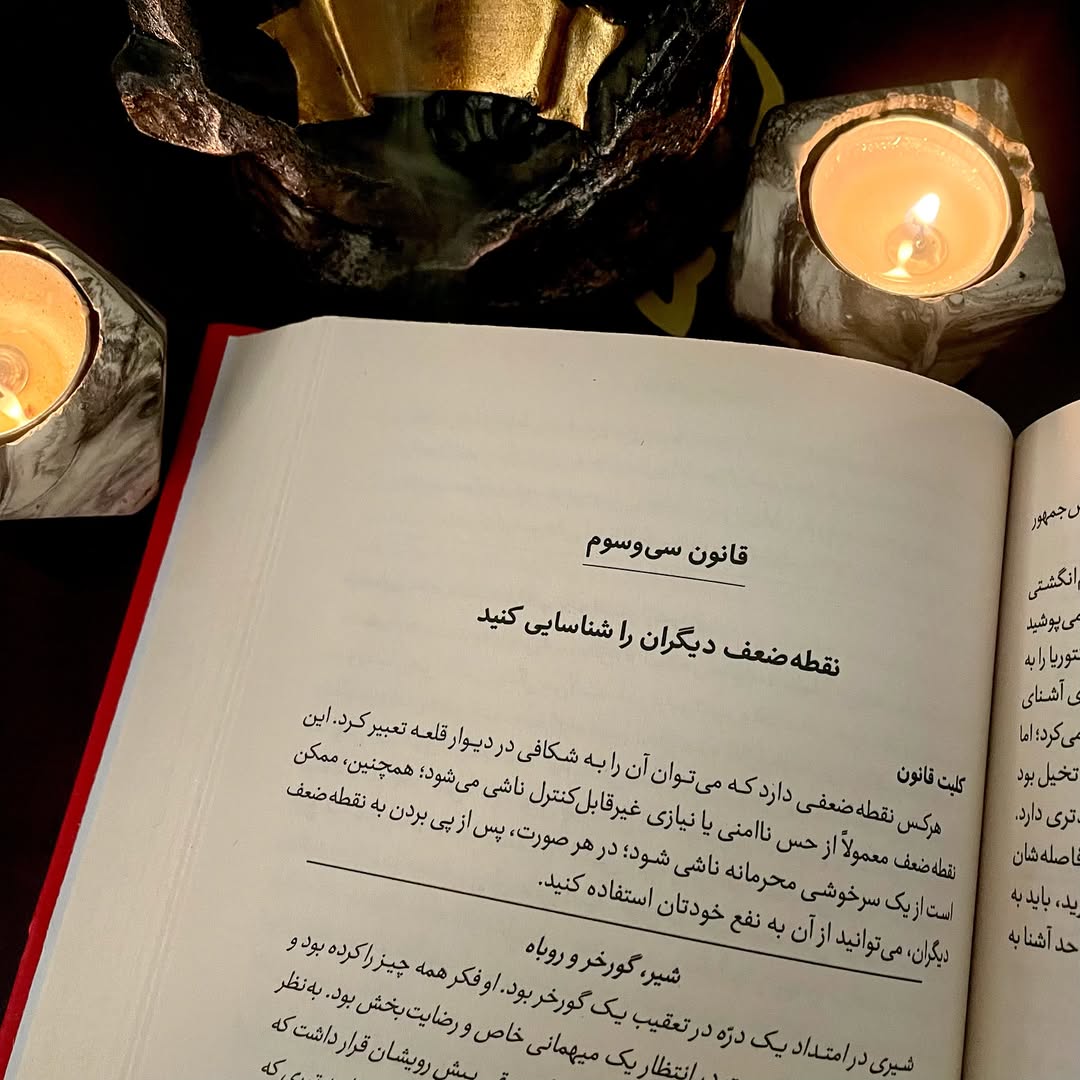 قانون سی‌وسوم
نقطه‌ضعف دیگران را شناسایی کنید
کلیت قانون
هرکس نقطه‌ضعفی دارد که می‌توان آن را به شکافی در دیوار قلعه تعبیر کرد. این
نقطه‌ضعف معمولاً از حس ناامنی یا نیازی غیرقابل‌کنترل ناشی می‌شود؛ همچنین، ممکن
است از یک سرخوشی محرمانه ناشی شود؛ در هر صورت، پس از پی بردن به نقطه‌ضعف
دیگران، می‌توانید از آن به نفع خودتان استفاده کنید.
شیر، گورخر و روباه
شیری در امتداد یک درّه در تعقیب یک گورخر بود. او فکر همه چیز را کرده بود و
در انتظار یک میهمانی خاص و رضایت‌بخش بود. به‌نظر
پیش رویشان قرار داشت که
که
جمهور
انگشتی
می‌پوشید
را به
آشنای
می‌کرد؛ اما
تخیل بود
دارد.
فاصله‌شان
باید به
حد آشنا به